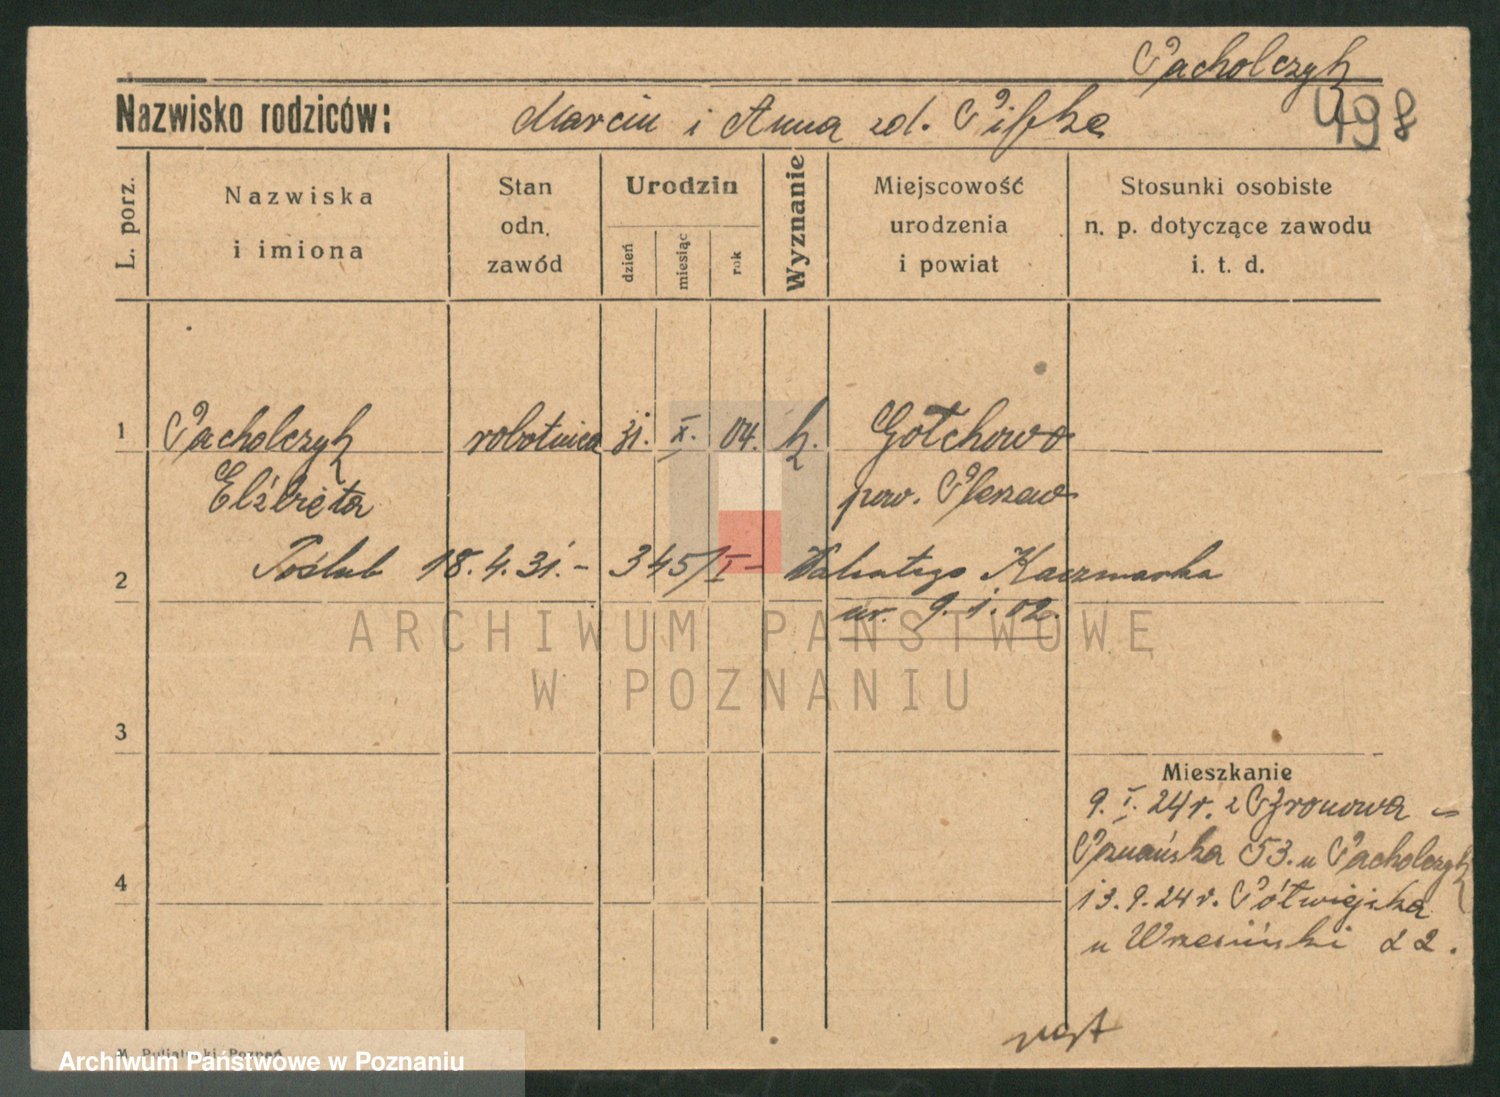 Pacholczyk
Nazwisko rodziców: Marcin i Anna zd. Pifke
498
L. porz.
Nazwiska
i imiona
Stan
odn.
zawód
Urodzin
dzień
miesiąc
rok
Wyznanie
Miejscowość
urodzenia
i powiat
Stosunki osobiste
n. p. dotyczące zawodu
i. t. d.
1 Pacholczyk robotnica 31. X. 04. k. Gołchowo
Elżbieta pow. Pleszew
2 Poślub 18.4.31.- 345/I- Kaczmarka
ur. 9.1.02.
ARCHIWUM PAŃSTWOWE
W POZNANIU
3
Mieszkanie
9.I.24r. z
Poznańska 53. u Pacholczyk
4
13.9.24r. Półwiejska
u Wrzesiński 22.
Poznań
Archiwum Państwowe w Poznaniu